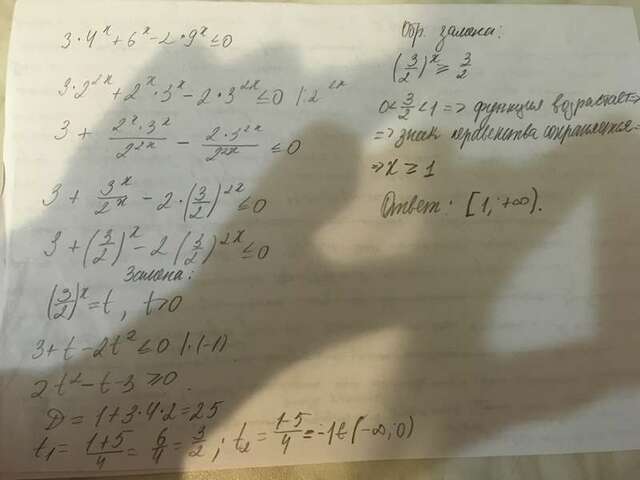 3·4ˣ+6ˣ-2·9ˣ≤0
3·2²ˣ+2ˣ·3ˣ-2·3²ˣ≤0 |:2²ˣ
3+ 2ˣ·3ˣ/2²ˣ - 2·3²ˣ/2²ˣ ≤0
3+ 3ˣ/2ˣ -2·(3/2)²ˣ≤0
3+(3/2)ˣ-2(3/2)²ˣ≤0
Замена:
(3/2)ˣ=t, t>0
3+t-2t²≤0 |·(-1)
2t²-t-3≥0
D=1+3·4·2=25
t₁= 1+5/4 = 6/4 = 3/2; t₂= 1-5/4 =-1∉(-∞;0)
Обр. замена:
(3/2)ˣ≥ 3/2
0< 3/2 <1=> функция возрастает=>
=> знак неравенства сохраняется
=>x≥1
Ответ: [1;+∞).